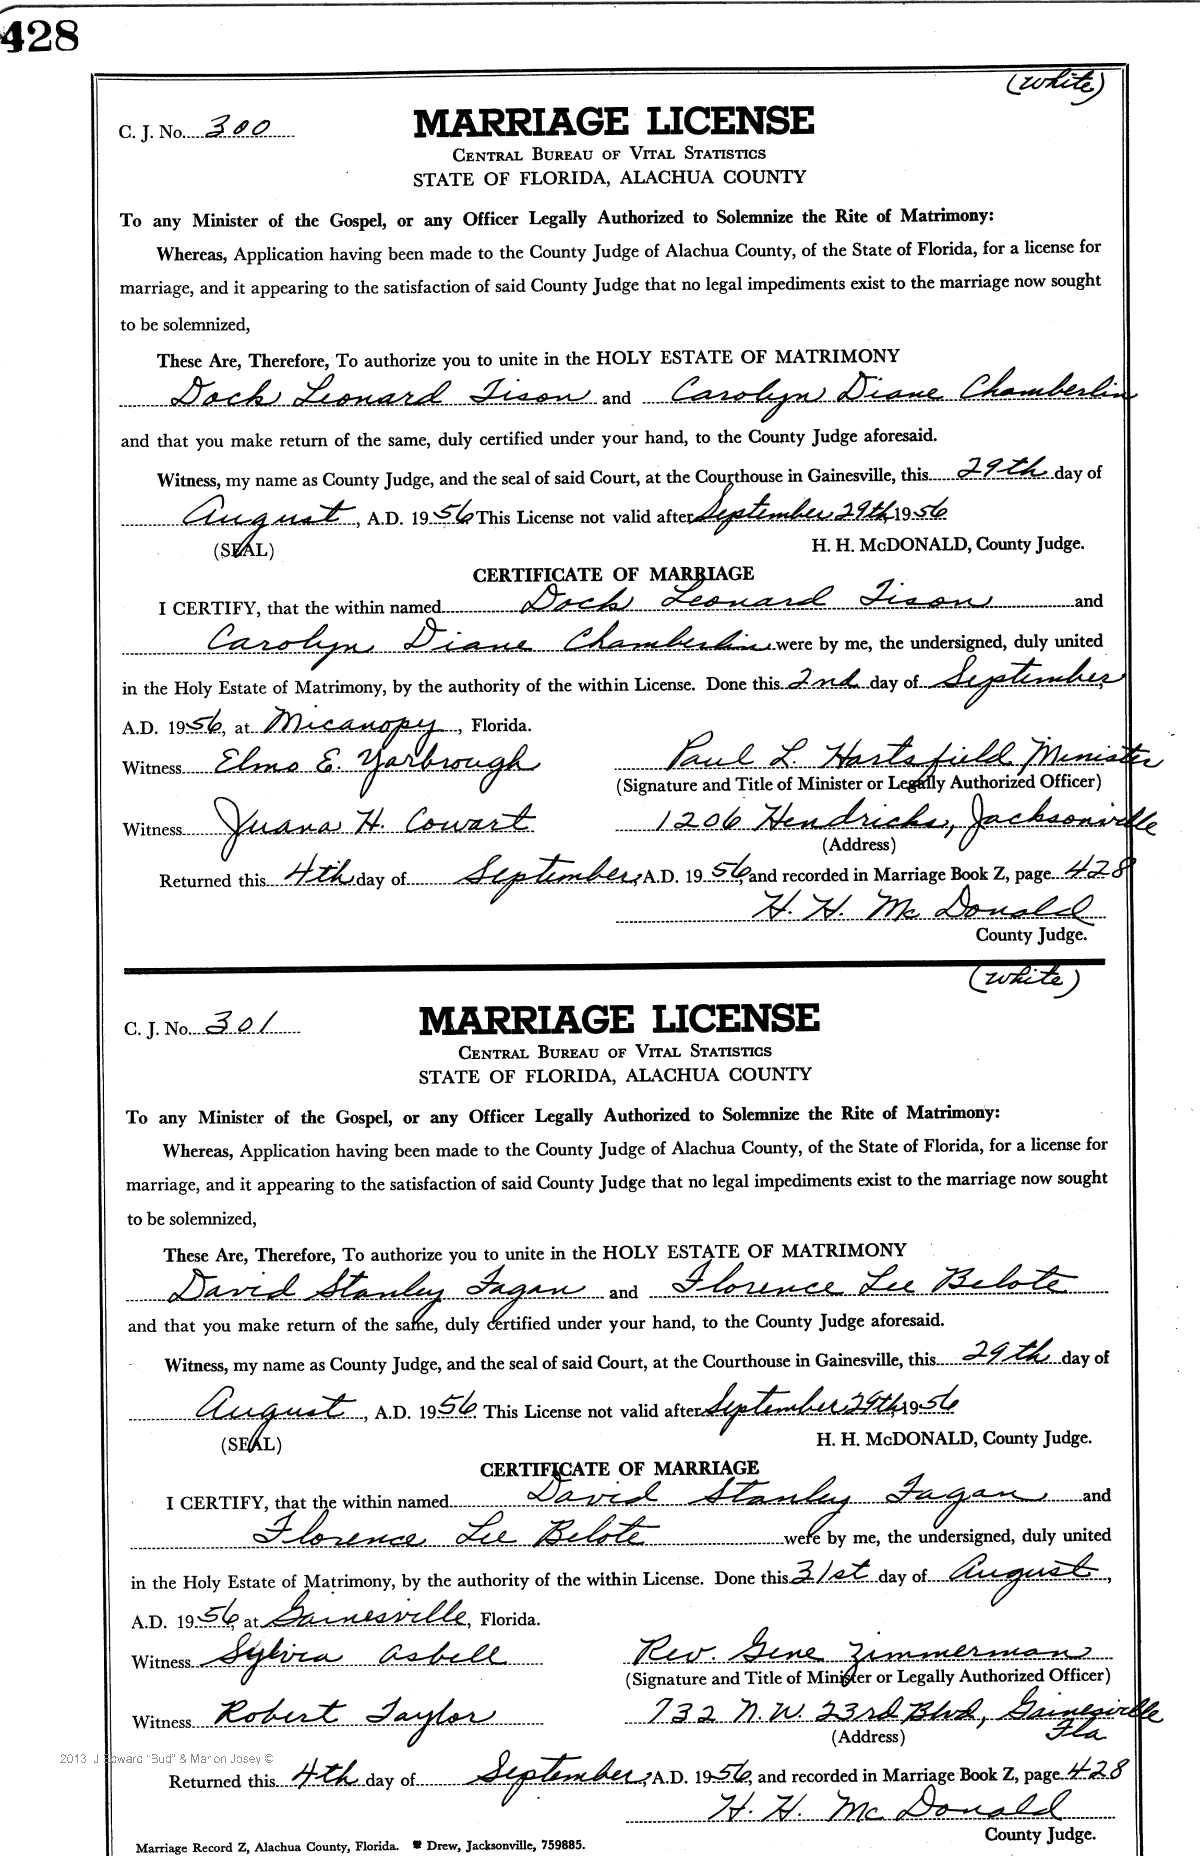 428
(White)
C. J. No. 300
MARRIAGE LICENSE
CENTRAL BUREAU OF VITAL STATISTICS
STATE OF FLORIDA, ALACHUA COUNTY
To any Minister of the Gospel, or any Officer Legally Authorized to Solemnize the Rite of Matrimony:
Whereas, Application having been made to the County Judge of Alachua County, of the State of Florida, for a license for
marriage, and it appearing to the satisfaction of said County Judge that no legal impediments exist to the marriage now sought
to be solemnized,
These Are, Therefore, To authorize you to unite in the HOLY ESTATE OF MATRIMONY
Dock Leonard Tison and Carolyn Diane Chamberlin
and that you make return of the same, duly certified under your hand, to the County Judge aforesaid.
Witness, my name as County Judge, and the seal of said Court, at the Courthouse in Gainesville, this 29th day of
August, A.D. 1956 This License not valid after September 29th, 1956
(SEAL) H. H. McDONALD, County Judge.
CERTIFICATE OF MARRIAGE
I CERTIFY, that the within named Dock Leonard Tison and
Carolyn Diane Chamberlin were by me, the undersigned, duly united
in the Holy Estate of Matrimony, by the authority of the within License. Done this 2nd day of September,
A.D. 1956, at Micanopy, Florida.
Witness Elmo E. Yarbrough Paul L. Hartsfield Minister
(Signature and Title of Minister or Legally Authorized Officer)
Witness Juana H. Cowart 1206 Hendricks, Jacksonville
(Address)
Returned this 4th day of September, A.D. 1956, and recorded in Marriage Book Z, page 428
H. H. McDonald
County Judge.
(White)
C. J. No. 301
MARRIAGE LICENSE
CENTRAL BUREAU OF VITAL STATISTICS
STATE OF FLORIDA, ALACHUA COUNTY
To any Minister of the Gospel, or any Officer Legally Authorized to Solemnize the Rite of Matrimony:
Whereas, Application having been made to the County Judge of Alachua County, of the State of Florida, for a license for
marriage, and it appearing to the satisfaction of said County Judge that no legal impediments exist to the marriage now sought
to be solemnized,
These Are, Therefore, To authorize you to unite in the HOLY ESTATE OF MATRIMONY
David Stanley Fagan and Florence Lee Belote
and that you make return of the same, duly certified under your hand, to the County Judge aforesaid.
Witness, my name as County Judge, and the seal of said Court, at the Courthouse in Gainesville, this 29th day of
August, A.D. 1956. This License not valid after September 29th, 1956
(SEAL) H. H. McDONALD, County Judge.
CERTIFICATE OF MARRIAGE
I CERTIFY, that the within named David Stanley Fagan and
Florence Lee Belote were by me, the undersigned, duly united
in the Holy Estate of Matrimony, by the authority of the within License. Done this 31st day of August,
A.D. 1956, at Gainesville, Florida.
Witness Sylvia Asbell Rev. Gene Zimmerman
(Signature and Title of Minister or Legally Authorized Officer)
Witness Robert Taylor 732 N.W. 23rd Blvd, Gainesville
Fla
(Address)
2013 J Edward "Bud" & Marion Josey ©
Returned this 4th day of September, A.D. 1956, and recorded in Marriage Book Z, page 428
H. H. McDonald
County Judge.
Marriage Record Z, Alachua County, Florida. Drew, Jacksonville, 759885.